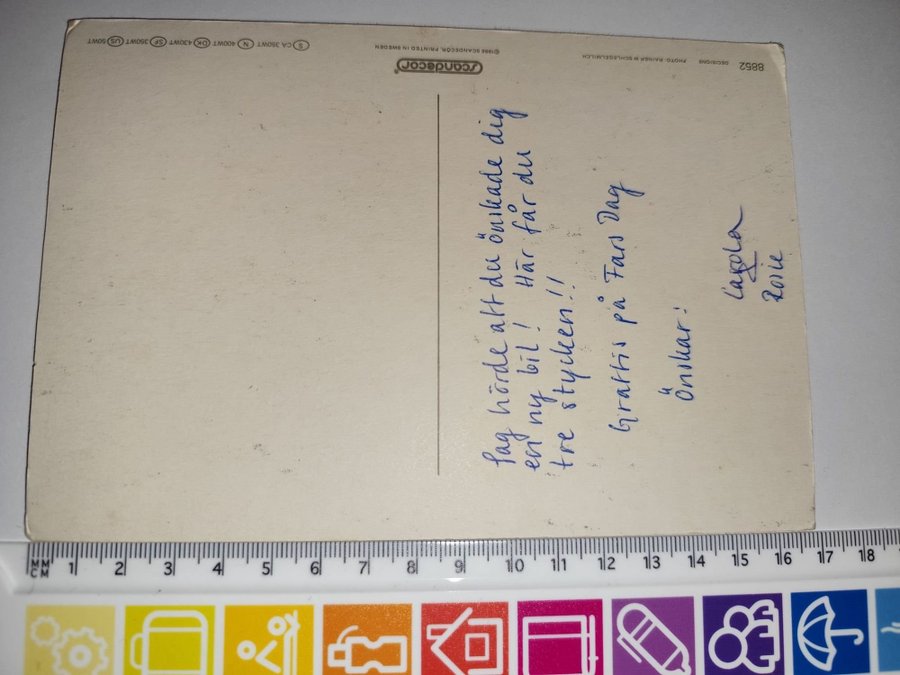 Jag hörde att du önskade dig
en ny bil! Här får du
tre stycken!!
Grattis på Fars Dag
Önskar:
Carola
8852 DECISIONS PHOTO: RAINER W SCHLEGELMILCH
scandecor®
©1988 SCANDECOR, PRINTED IN SWEDEN
S CA 350WT N 400WT DK 430WT SF 350WT US 50WT
MM
CM
1 2 3 4 5 6 7 8 9 10 11 12 13 14 15 16 17 18